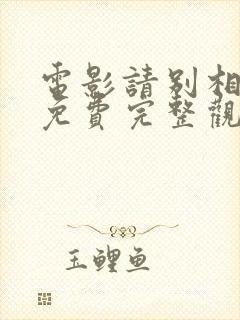 電影請別相
免費完整觀
玉鯉魚